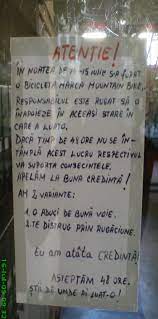 ATENȚIE!
ÎN NOATEA DE 14-15 IULIE S-A FURAT
O BICICLETĂ MARCĂ MOUNTAIN BIKE,
RESPONSABILUL ESTE RUGAT SĂ O
ÎNAPOIEZE ÎN ACEEAȘI STARE ÎN
CARE A LUAT-O.
DACĂ TIMP DE 48 ORE NU SE ÎN-
TÂMPLĂ ACEST LUCRU RESPECTIVUL
VA SUPORTA CONSECINȚELE.
APELĂM LA BUNA CREDINȚĂ!
AM 2 VARIANTE:
1. O ADUCI DE BUNĂ VOIE.
2. TE DISTRUG PRIN RUGĂCIUNE.
Eu am atâta CREDINȚĂ!
AȘTEPTĂM 48 ORE,
ȘTII DE UNDE AI LUAT-O!